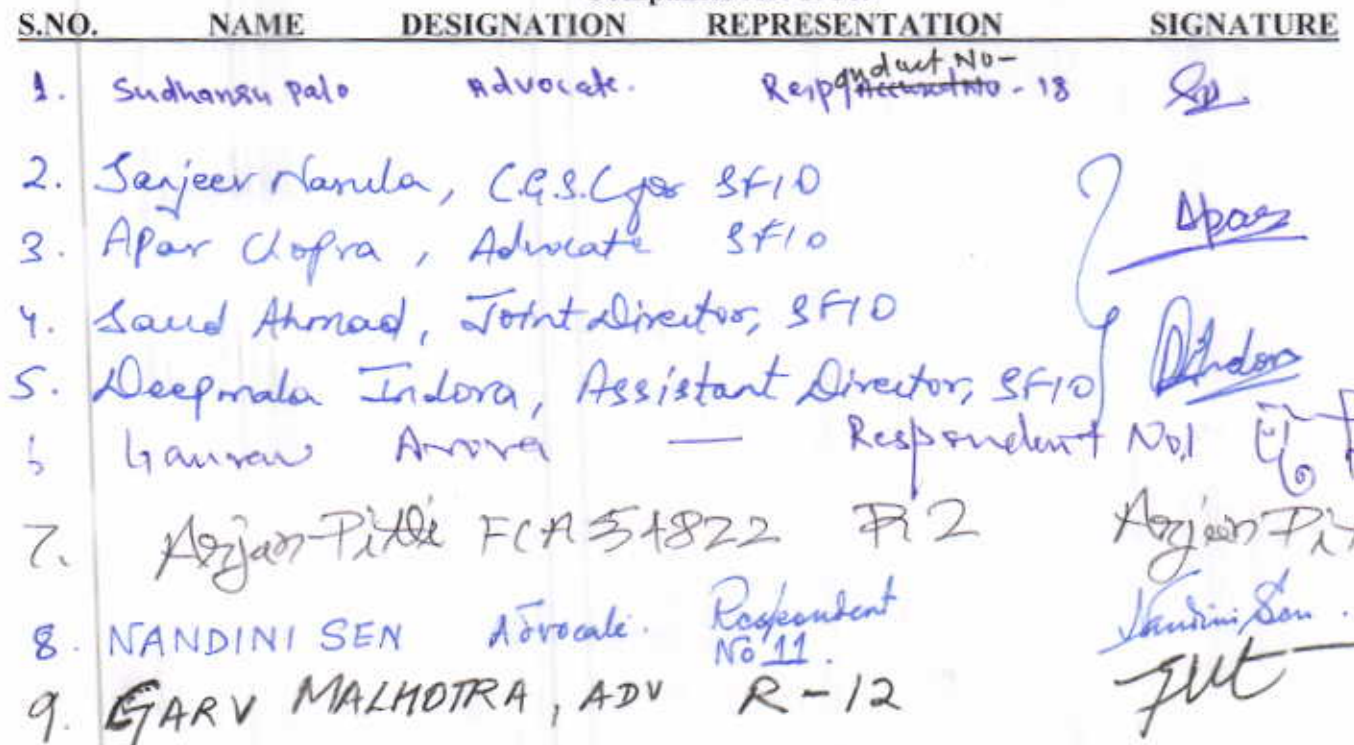 S.NO. NAME DESIGNATION REPRESENTATION SIGNATURE
1. Sudhansu Palo Advocate. Respondent No- 18
2. Sanjeev Narula, C.G.S.C for SFIO
3. Apar Chopra, Advocate SFIO Apar
4. Saud Ahmad, Joint Director, SFIO
5. Deepmala Indora, Assistant Director, SFIO DIndora
6 Gaurav Arora — Respondent No.1
7. Arjan Pitti FCA 54822 R 2 Arjan Pit
8. NANDINI SEN Advocate. Respondent No 11. Nandini Sen.
9. GARV MALHOTRA, ADV R-12